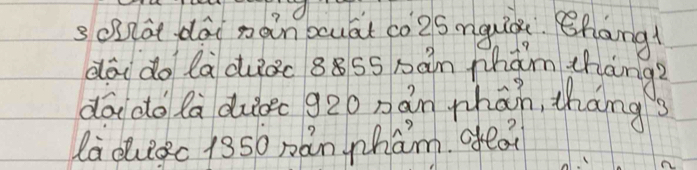 3 Một đội sản xuất có 25 người. Tháng 1
đội đó là được 8855 sản phẩm tháng 2
đội đó là được 920 sản phẩn, tháng 3
là được 1350 sản phẩm. Hỏi